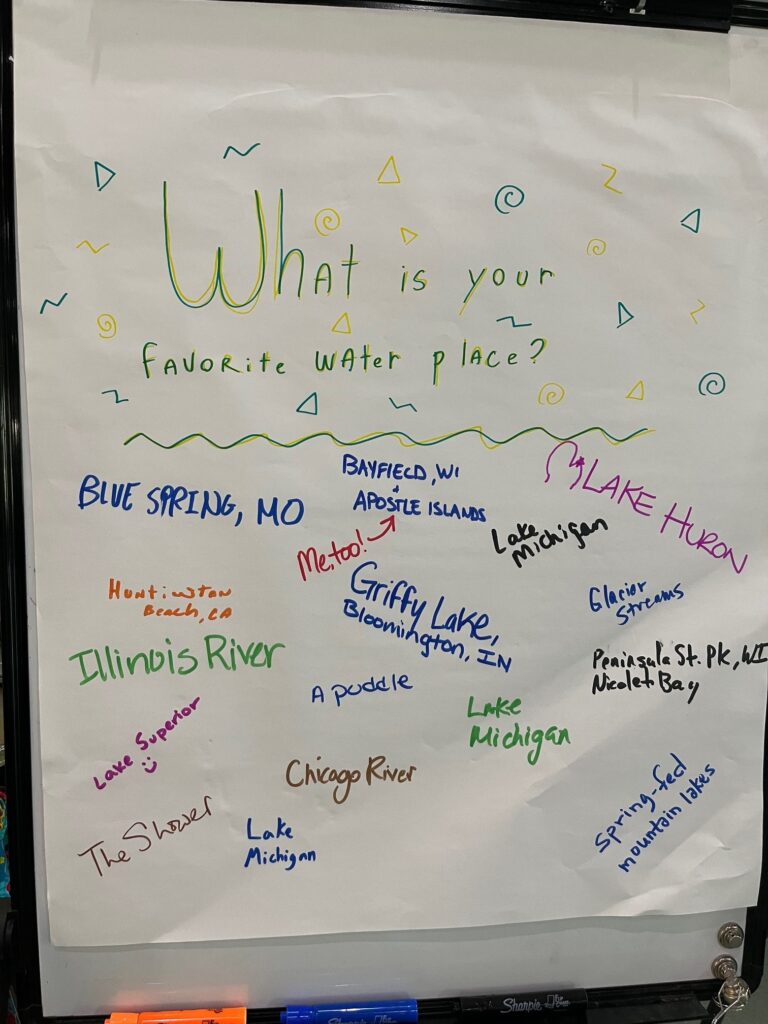 What is your
favorite water place?
BLUE SPRING, MO
BAYFIELD, WI
+
APOSTLE ISLANDS
Me, too!
LAKE HURON
Lake
Michigan
Huntinwton
Beach, CA
Griffy Lake,
Bloomington, IN
Glacier
Streams
Illinois River
A puddle
Peninsula St. Pk, WI
Nicolet Bay
Lake Superior
Lake
Michigan
Chicago River
The Shower
Lake
Michigan
Spring-fed
mountain lakes
Sharpie
Sharpie